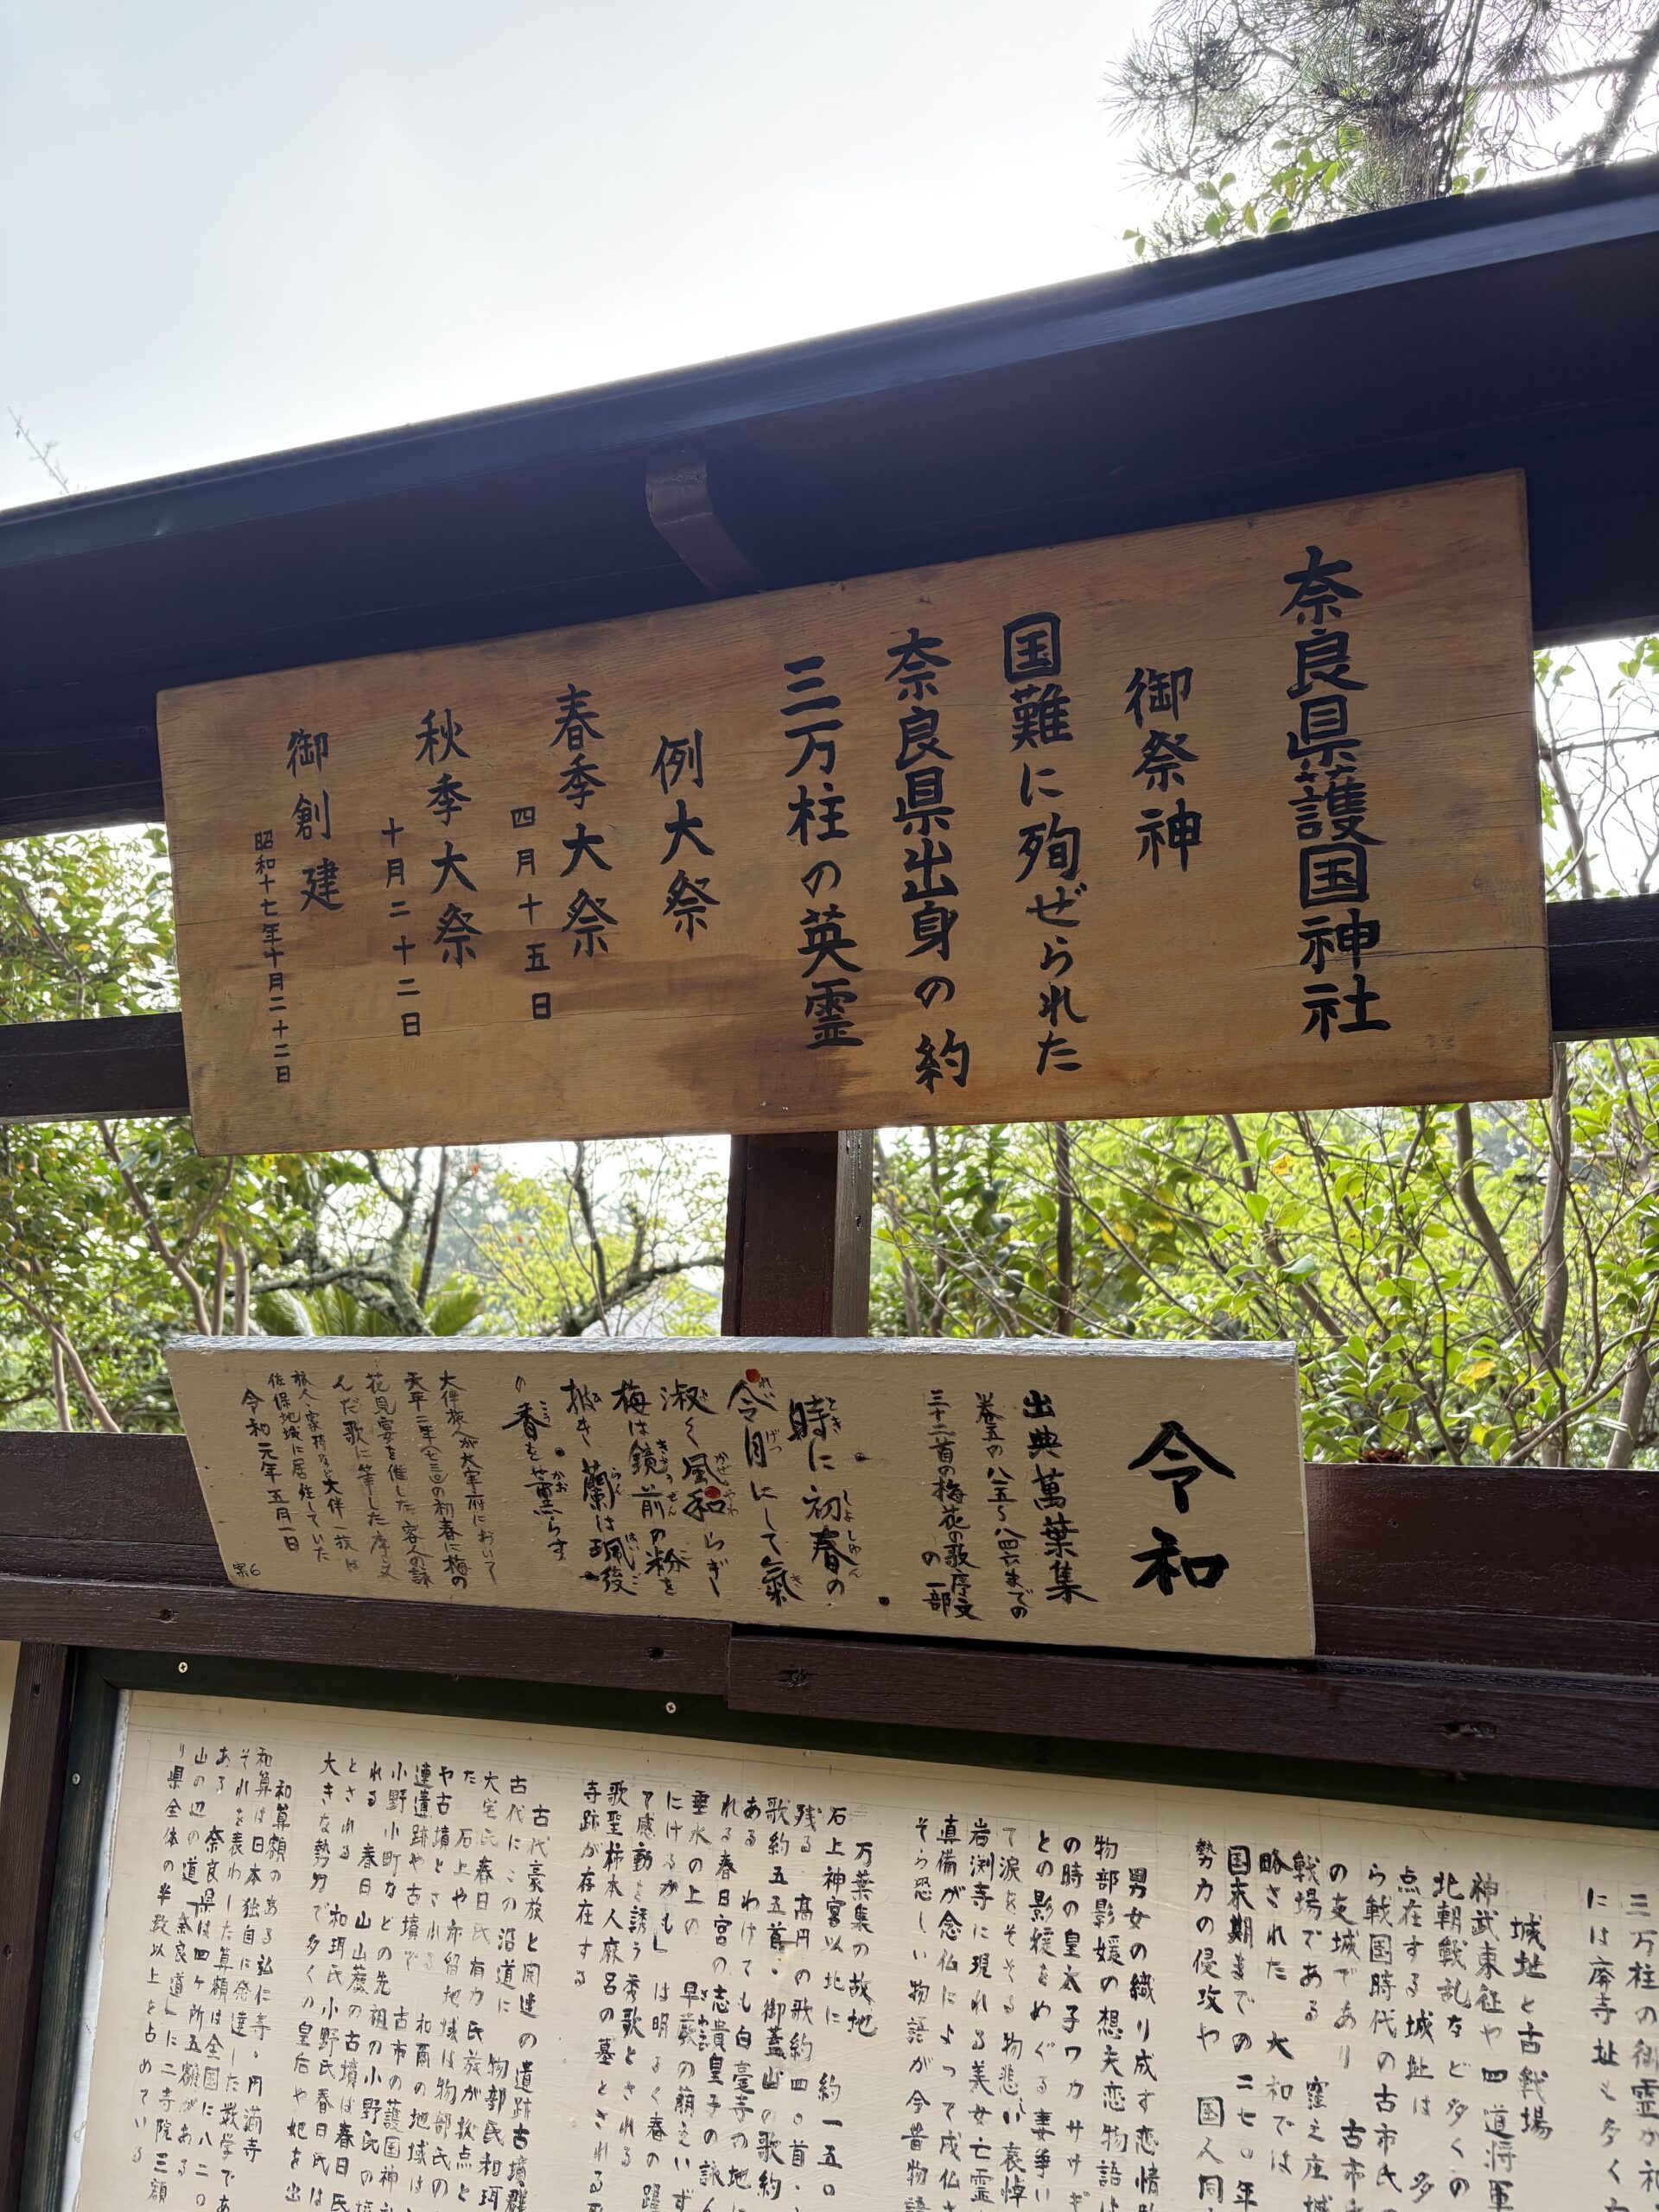 奈良県護国神社
御祭神
国難に殉ぜられた
奈良県出身の約
三万柱の英霊
例大祭
春季大祭
四月十五日
秋季大祭
十月二十二日
御創建
昭和十七年十月二十二日
令和
出典萬葉集
巻五の八一五〜八四六までの
三十二首の梅花の歌序文
の一部
時に初春の
令月にして氣
淑く風和らぎ
梅は鏡前の粉を
披き蘭は珮後
の香を薫らす
大伴旅人が大宰府において
天平二年(七三〇)の初春に梅の
花見宴を催した客人の詠
んだ歌に筆した序文
旅人・家持など大伴一族は
佐保地域に居住していた
令和元年五月一日
三万柱の御霊が
には廃寺址も多く
城址と古戦場
神武東征や四道将軍
北朝戦乱など多くの
点在する城址は 多
ら戦国時代の古市氏の
の支城であり 古市
戦場である 窪之庄城
略された 大和では
国末期までの二七〇年
勢力の侵攻や 国人同
男女の織り成す恋情
物部影媛の想夫恋物語は
の時の皇太子ワカサザギ
との影媛をめぐる妻争い
て涙をそそる物悲しい哀悼
岩渕寺に現れる美女亡霊
真備が念仏によって成仏さ
そら恐しい物語が今昔物語
万葉集の故地
石上神宮以北に 約一五〇
残る 高円の歌約四〇首・
歌約五五首・御蓋山の歌約
ある わけても白毫寺の地に
れる春日宮の志貴皇子の詠
垂水の上の 早蕨の萌えいず
にけるかも」は明るく春の躍
て感動を誘う秀歌とされる
歌聖柿本人麻呂の墓とされる
寺跡が存在する
古代豪族と関連の遺跡古墳群
古代にこの沿道に 物部氏和珥
大宅氏春日氏有力氏族が拠点と
た 石上や布留地域は物部氏の
や古墳とされる 和爾の地域は
連遺跡や古墳で 古市の護国神社
小野小町などの先祖の小野氏の
れる 春日山山麓の古墳は春日氏
とされる 和珥氏小野氏春日氏は
大きな勢力で多くの皇后や妃を出
和算額のある弘仁寺・円満寺
和算は日本独自に発達した数学であ
それを表わした算額は全国に八二〇
ある 奈良県は四ヶ所五額がある
山の辺の道「奈良道」に二寺院三額
り県全体の半数以上を占めている